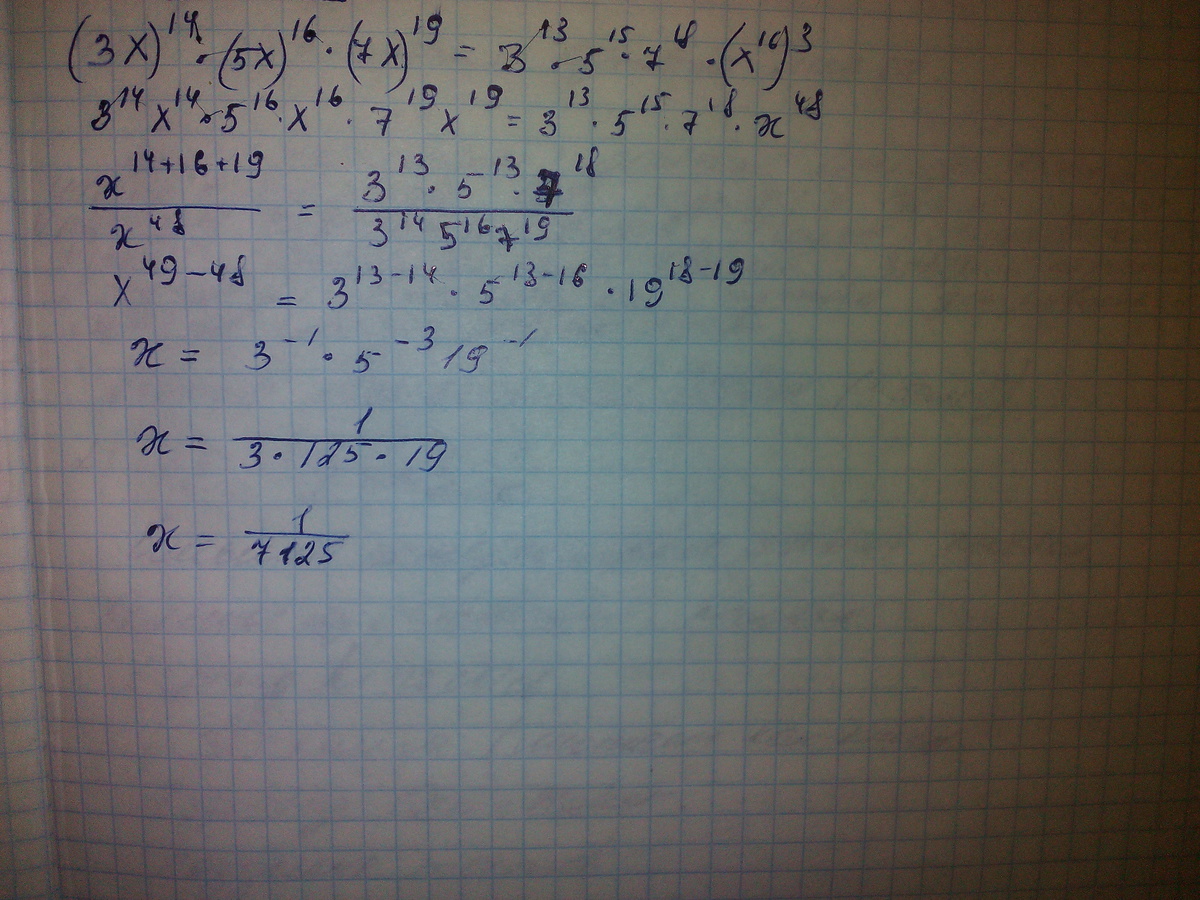 (3x)^14 · (5x)^16 · (7x)^19 = 3^13 · 5^15 · 7^18 · (x^16)^3
3^14 x^14 · 5^16 · x^16 · 7^19 x^19 = 3^13 · 5^15 · 7^18 · x^48
x^(14+16+19) / x^48 = 3^13 · 5^13 · 7^18 / 3^14 5^16 7^19
x^(49-48) = 3^(13-14) · 5^(13-16) · 19^(18-19)
x = 3^-1 · 5^-3 19^-1
x = 1 / 3 · 125 · 19
x = 1 / 7125